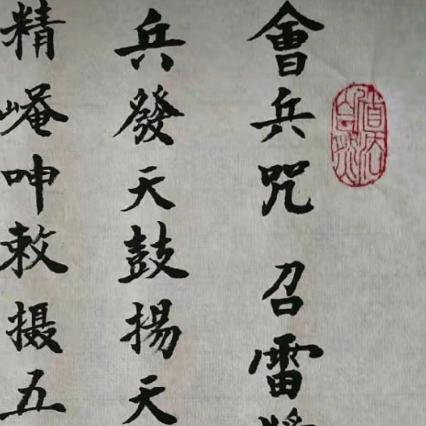 會兵咒 召雷將
兵發天鼓揚天
精崦呻敕摄五